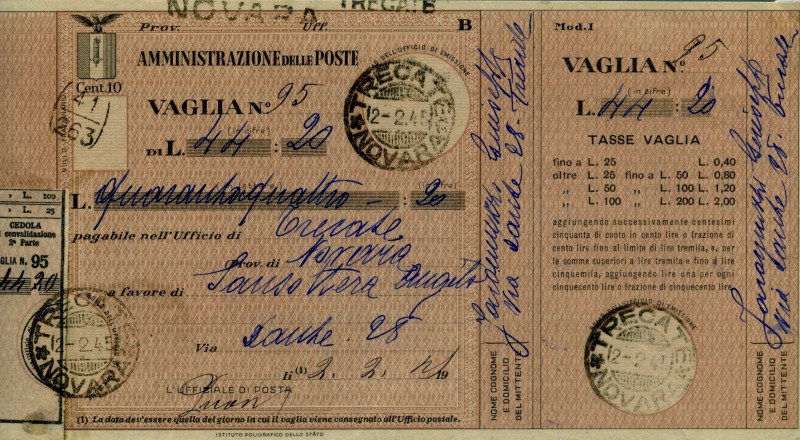 NOVARA TRECATE
Prov. Uff. B
AMMINISTRAZIONE DELLE POSTE
BOLLO DELL'UFFICIO DI EMISSIONE
Cent. 10
VAGLIA No 95
(in cifre)
DI L. 44 : 20
TRECATE
12-2.4
NOVARA
63
L. Quarantaquattro 20
pagabile nell'Ufficio di Trecate
Prov. di Novara
a favore di Angelo
Via Dante 28
li (1) 2. 2. 19
L'UFFICIALE DI POSTA
(1) La data dev'essere quella del giorno in cui il vaglia viene consegnato all'Ufficio postale.
ISTITUTO POLIGRAFICO DELLO STATO
L. 100
L. 25
CEDOLA
di convalidazione
2ª Parte
VAGLIA N. 95
44 20
TRECATE
12-2.4
NOVARA
Giuseppe
Via Dante 28 - Trecate
NOME COGNOME
E DOMICILIO
DEL MITTENTE
Mod. I
VAGLIA No 95
(in cifre)
L. 44 : 20
TASSE VAGLIA
fino a L. 25 L. 0,40
oltre L. 25 fino a L. 50 L. 0,80
„ L. 50 „ L. 100 L. 1,20
„ L. 100 „ L. 200 L. 2,00
aggiungendo successivamente centesimi
cinquanta di cento in cento lire o frazione di
cento lire fino al limite di lire tremila, e, per
le somme superiori a lire tremila e fino a lire
cinquemila, aggiungendo lire una per ogni
cinquecento lire o frazione di cinquecento lire.
BOLLO DELL'UFFICIO DI EMISSIONE
TRECATE
12-2.4
NOVARA
Giuseppe
Via Dante 28. Trecate
NOME COGNOME
E DOMICILIO
DEL MITTENTE